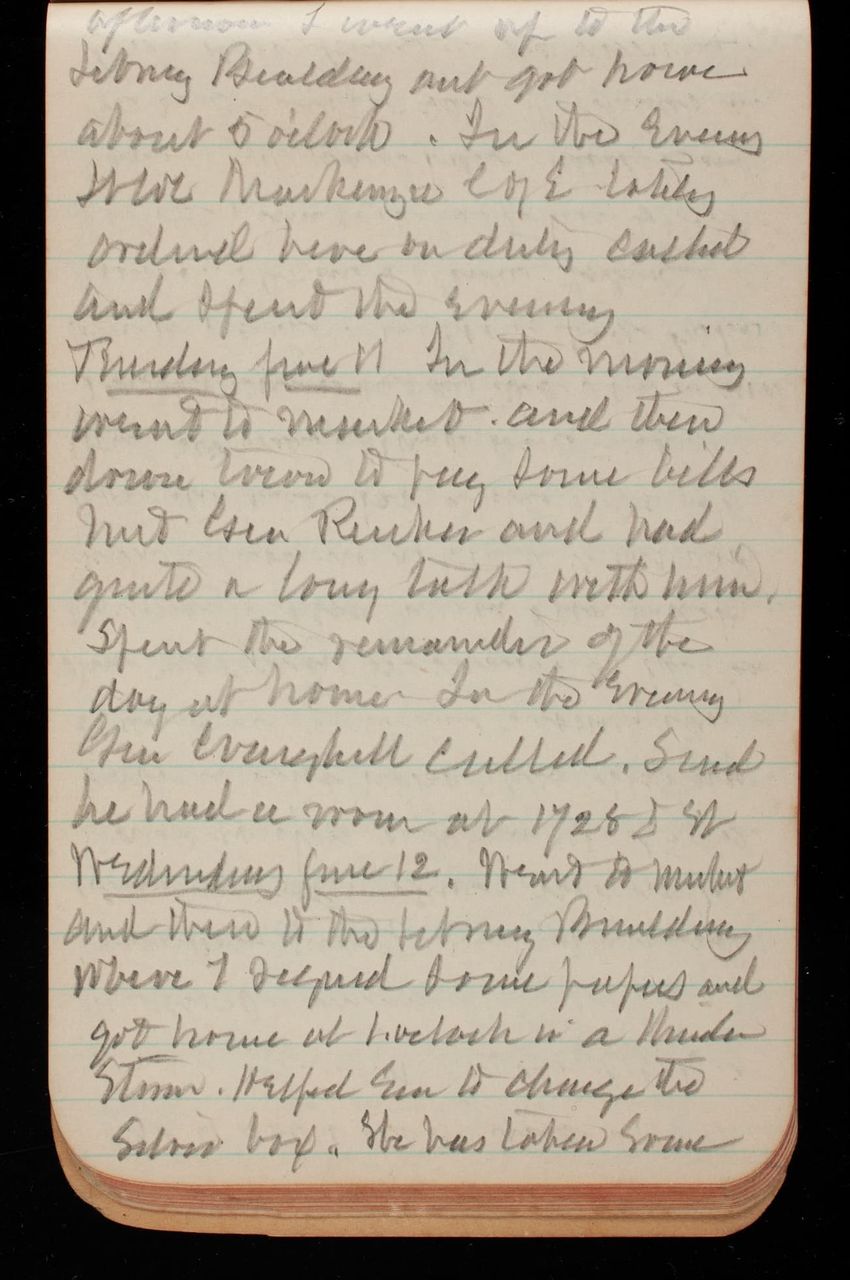 afternoon I went up to the
Library Building and got home
about 5 o'clock. In the Evening
Mackenzie C of E lately
ordered here on duty called
and spent the evening
Tuesday June 11 In the morning
went to market. and then
down town to pay some bills
Met Gen Rucker and had
quite a long talk with him.
Spent the remainder of the
day at home In the Evening
Gen called. Said
he had a room at 1728 I St
Wednesday June 12. Went to market
and then to the Library Building
Where I signed some papers and
got home at 1 oclock in a thunder
Storm. Helped Eva to change the
Silver box. She has taken some